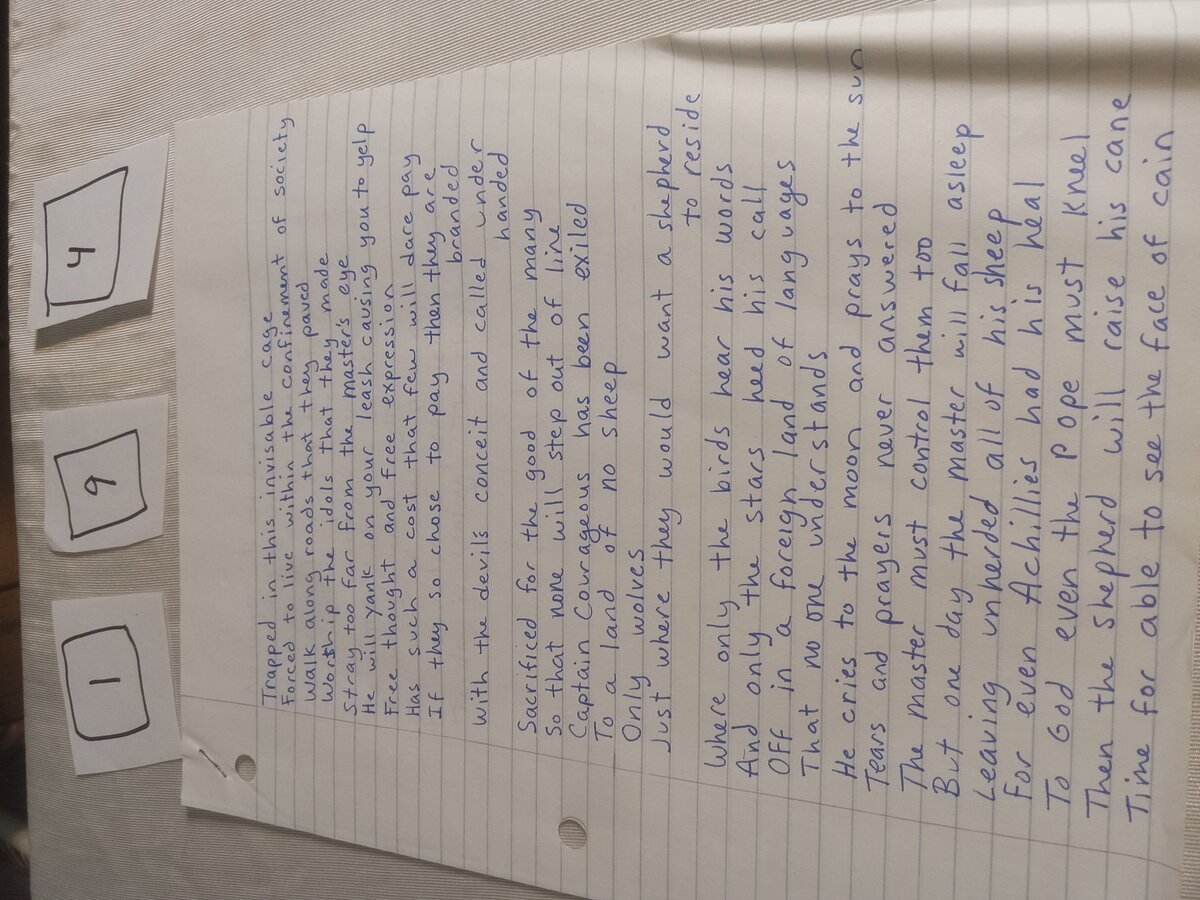 1
9
4
Trapped in this invisable cage
Forced to live within the confinement of society
Walk along roads that they paved
Worship the idols that they made
Stray too far from the masters eye
He will yank on your leash causing you to yelp
Free thought and free expression
Has such a cost that few will dare pay
If they so chose to pay then they are
branded
With the devils conceit and called under
handed
Sacrificed for the good of the many
So that none will step out of line
Captain Courageous has been exiled
To a land of no sheep
Only wolves
Just where they would want a shepherd
to reside
Where only the birds hear his words
And only the stars heed his call
Off in a foreign land of languages
That no one understands
He cries to the moon and prays to the sun
Tears and prayers never answered
The master must control them too
But one day the master will fall asleep
Leaving unherded all of his sheep
For even Achillies had his heal
To God even the pope must kneel
Then the shepherd will raise his cane
Time for able to see the face of cain